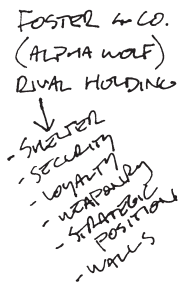 FOSTER & CO.
(ALPHA WOLF)
RIVAL HOLDING
- SHELTER
- SECURITY
- LOYALTY
- WEAPONRY
- STRATEGIC
POSITION
- WALLS